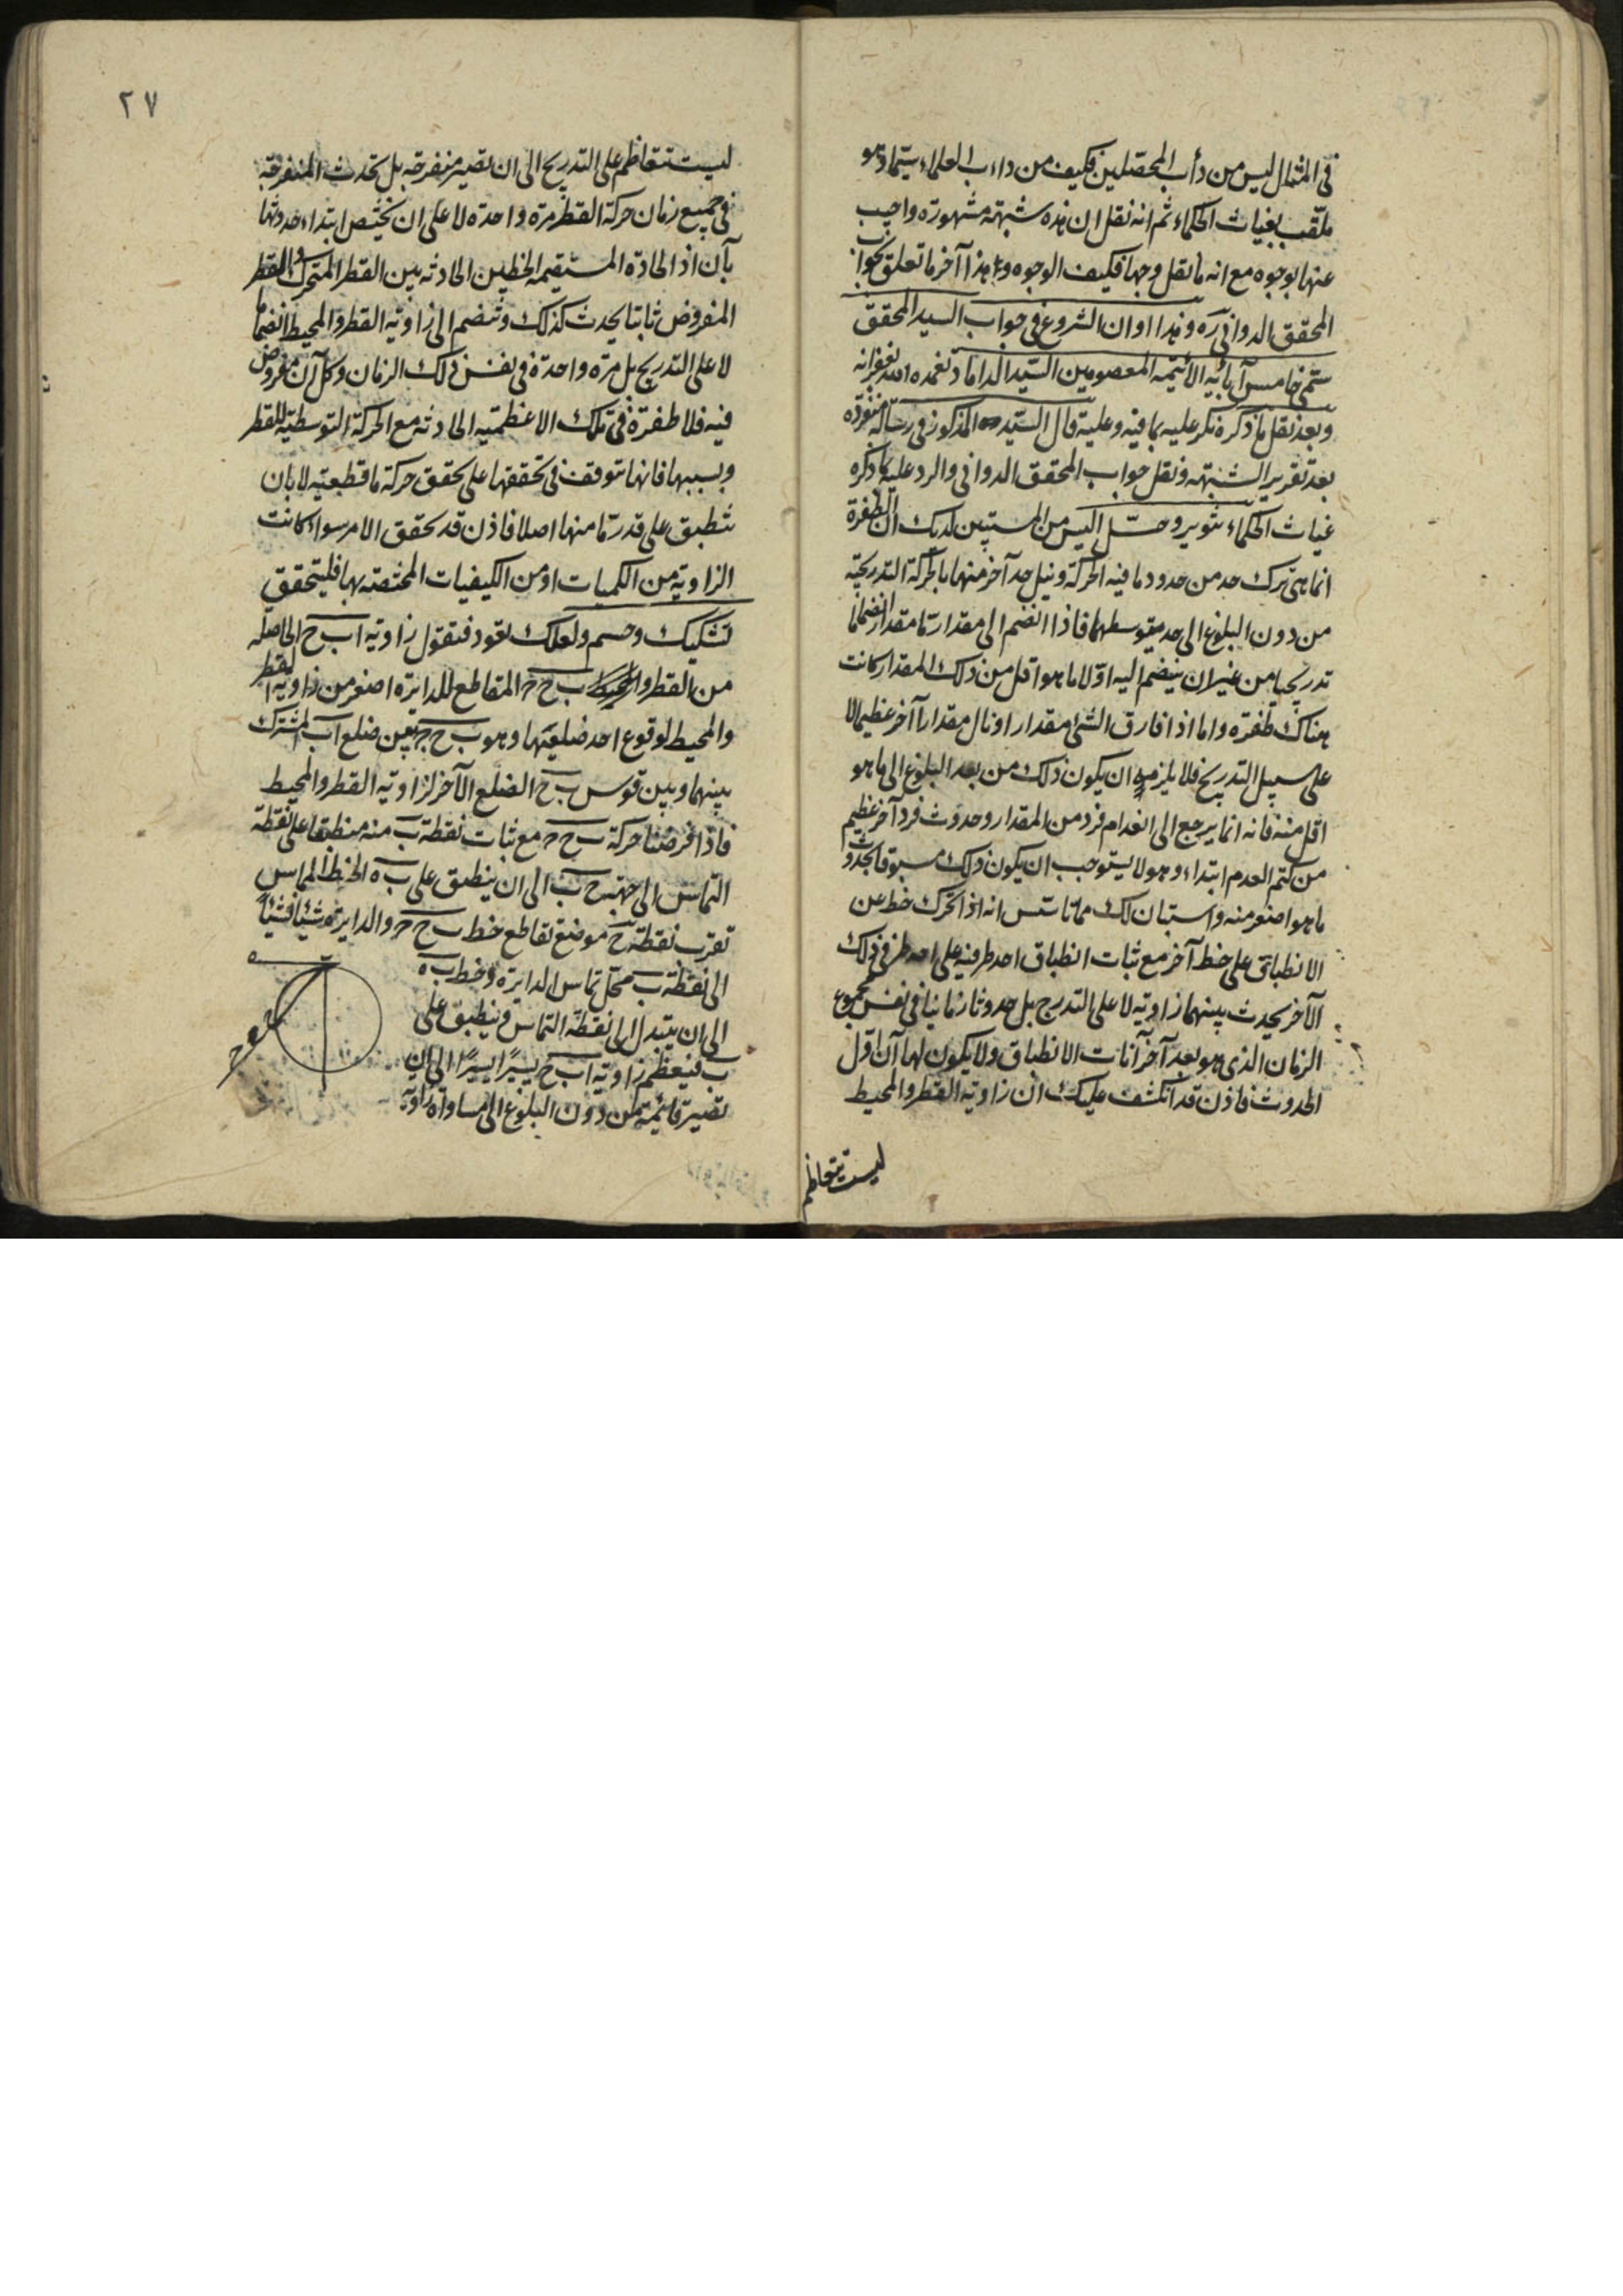 في المثال ليس من دأب المحصلين فكيف من داءب العلماء سيما وهو
ملقب بغياث الحكماء ثم انه نقل ان هذه شبهة مشهورة واجيب
عنها بوجوه مع انه ما نقل وجها فكيف الوجوه وهذا آخر ما تعلق بجواب
المحقق الدواني ره وهذا اوان الشروع في جواب السيد المحقق
سمي خامس آبائه الائمة المعصومين السيد الداماد تغمده الله بغفرانه
وبعد نقل ما ذكره نكر عليه بما فيه وعليه قال السيد المذكور في رسالة منفردة
بعد تقرير الشبهة ونقل جواب المحقق الدواني والرد عليه كما ذكره
غياث الحكماء تنوير وحل اليس من المستبين لديك ان الطفرة
انما هي ترك حد من حدود ما فيه الحركة ونيل حد آخر منها بالحركة التدريجية
من دون البلوغ الى حد يتوسطهما فاذا انضم الى مقدار ما مقدار انضماما
تدريجيا من غير ان ينضم اليه اولا ما هو اقل من ذلك المقدار كانت
هناك طفرة واما اذا فارق الشئ مقدار او نال مقدارا آخر عظيما لا
على سبيل التدريج فلا يلزم ان يكون ذلك من بعد البلوغ الى ما هو
اقل منه فانه انما يرجع الى انعدام فرد من المقدار وحدوث فرد آخر عظيم
من كتم العدم ابتداء وهو لا يستوجب ان يكون ذلك مسبوقا بحدوث
ما هو اصغر منه واستبان لك مما تاسس انه اذا تحرك خط عن
الانطباق على خط آخر مع ثبات انطباق احد طرفيه على احد طرفي ذلك
الآخر يحدث بينهما زاوية لا على التدرج بل حدوثا زمانيا في نفس مجموع
الزمان الذي هو بعد آخر آنات الانطباق ولا يكون لها آن اول
الحدوث فاذن قد انكشف عليك ان زاوية القطر والمحيط
ليست تتعاظم
٢٧
ليست تتعاظم على التدريج الى ان تصير منفرجة بل تحدث المنفرجة
في جميع زمان حركة القطر مرة واحدة لا على ان يختص ابتداء حدوثها
بآن اذ الحادة المستقيمة الخطين الحادثة بين القطر المتحرك والقطر
المفروض ثابتا يحدث كذلك وتنضم الى زاوية القطر والمحيط انضماما
لا على التدريج بل مرة واحدة في نفس ذلك الزمان وكل آن مفروض
فيه فلا طفرة في تلك الاعظمية الحادثة مع الحركة التوسطية للقطر
وبسببها فانها تتوقف في تحققها على تحقق حركة ما قطعية لا بان
تنطبق على قدر ما منها اصلا فاذن قد تحقق الامر سواء كانت
الزاوية من الكميات او من الكيفيات المختصة بها فليتحقق
تشكيك وحسم ولعلك تعود فتقول زاوية ا ب ح الحاصلة
من القطر والخط ب ح ر المقاطع للدايرة اصغر من زاوية القطر
والمحيط لوقوع احد ضلعيها وهو ب ح ر بين ضلع ا ب المشترك
بينهما وبين قوس ب ح الضلع الآخر لزاوية القطر والمحيط
فاذا فرضنا حركة ب ح ر مع ثبات نقطة ب منه منطبقا على نقطة
التماس الى جهة ح ب الى ان ينطبق على ب ه الخط المماس
تقرب نقطة ح موضع تقاطع خط ب ح ر والدايرة شيئا فشيئا
الى نقطة ب محل تماس الدايرة وخط ب ه
الى ان يتبدل الى نقطة التماس وينطبق على
ب فيعظم زاوية ا ب ح يسيرا يسيرا الى ان
تصير قائمة من دون البلوغ الى مساواة زاوية
ه
ب
ح
ر
ا